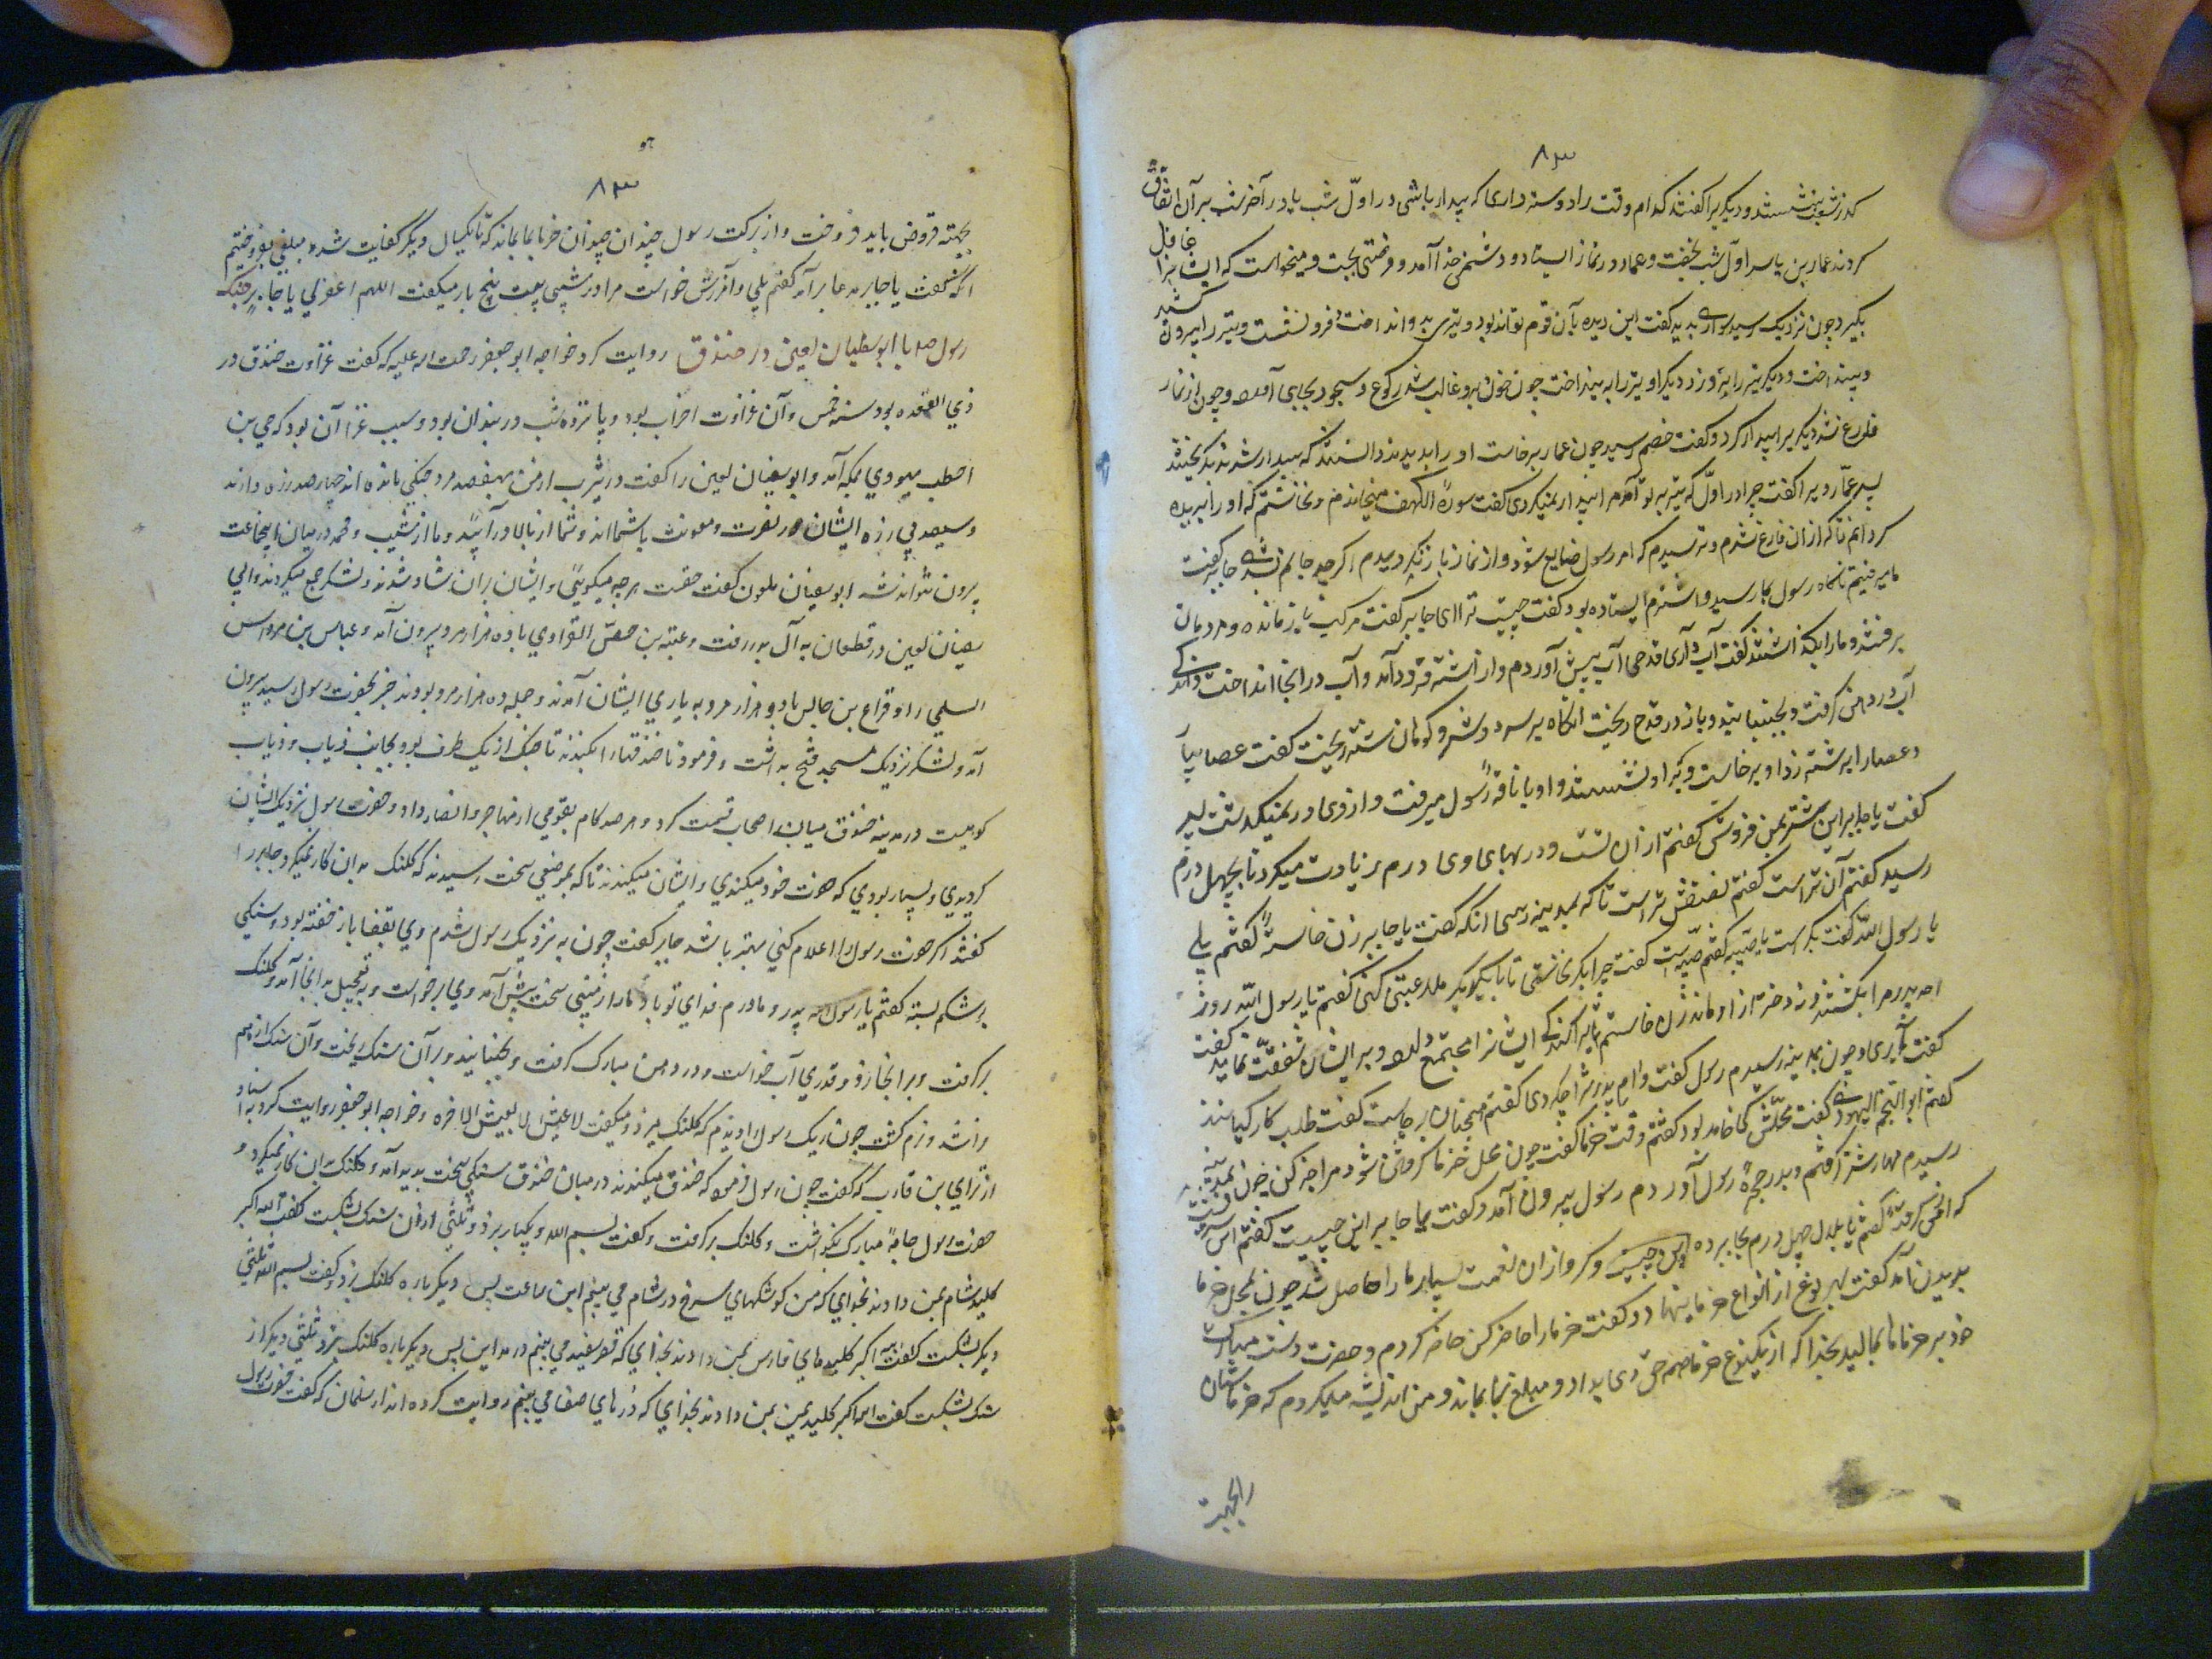 ٨٣
کدر شعب بنشستند و دیگر یرا گفتند کدام وقت را دوستر داری که بیدار باشی در اول شب یا در آخر شب بر آن اتفاق
کردند عمار بن یاسر اول شب بخفت و عماد در نماز ایستاد و دشمن خدا آمد و فرصتی بجست و میخواست که ایشانرا غافل
بگیرد چون نزدیک رسید سوادی بدید گفت این دیده بان قوم تواند بود و تیری بدو انداخت و فرو نشست و تیر را بیرون کشید
و بینداخت و دیگر تیر را بزد و دیگر او تیر را بینداخت چون خون برو غالب شد رکوع و سجود بجای آورد و چون از نماز
فارغ شد دیگر یرا بیدار کرد و گفت خصم رسید چون عمار برخاست او را بدیدند دانستند که بیدار شدند بگریختند
پس عمار ویرا گفت چرا در اول که تیر بتو آمد مرا بیدار نمیکردی گفت سورة الکهف میخواندم و نخاستم که او را بریده
کردانم تا که ازان فارغ شدم و ترسیدم که امر رسول ضایع شود و از نماز باز نگردیدم اگر چه جانم بشدی جابر گفت
ما میرفتیم ناگاه رسول بما رسید و اشترم ایستاده بود گفت چیست ترا ای جابر گفت مرکب باز مانده و مردمان
برفتند و مارا بگذاشتند گفت آب داری قدحی آب پیش آوردم و از اشتر فرود آمد و آب در آنجا انداخت و اندکی
آب در دهن گرفت و بجنبانید و باز در قدح ریخت آنگاه بر سر و دوش و کوهان شتر ریخت گفت عصا بیار
و عصا را بر شتر زد او برخاست و بر او نشستند و او با ناقه رسول میرفت و از وی در نمیگذشت پس
گفت یا جابر این شتر بمن فروش گفتم ازان تست و در بهای وی درم درم زیادت میکرد تا بچهل درم
رسید گفتم آن تراست گفتم نفقتش تراست تا که بمدینه رسی آنگه گفت یا جابر زن خاستۀ گفتم بلی
یا رسول الله گفت بکر است یا ثیبه گفتم ثیبه است گفت چرا بکر نخاستی تا با یکدیگر ملاعبتی کنی گفتم یا رسول الله روز
احد پدرم را بکشتند و نه دختر از او ماند زن خاستم تا پراکندگی ایشانرا مجتمع دارد و بر ایشان شفقت نماید گفت
گفت نیک کردی و چون بمدینه رسیدم رسول گفت وام پدرت را چه کردی گفتم همچنان بر جاست گفت طلب کار کیانند
گفتم ابو التجم الیهودی گفت محلش کی خواهد بود گفتم وقت خرما گفت چون محل خرما کردن شود مرا خبر کن چون بمدینه
رسیدم مهار شتر گرفتم و بدر حجره رسول آوردم رسول بیرون آمد و گفت یا جابر این چیست گفتم اشتر
که از من خریدۀ گفتم یا بلال چهل درم بجابر ده این چیز و کرو از ان نعمت بسیار مارا حاصل شد چون محل خرما
بریدن آمد گفت بهر نوع از انواع خرما بنهاد و گفت خرما را حاضر کن حاضر کردم و حضرت دست مبارک
خود بر خرماها بمالید بخدا که از یکنوع خرما همه حق وی بداد و مبلغ تمام بماند و من اندیشه میکردم که خرماشان
رابجهته
هو
٨٣
بجهته قروض باید فروخت و از برکت رسول چندان چندان خرما بما بماند که تا یکسال دیگر کفایت شد و مبلغی بفروختیم
انگه گفت یا جابر مدعا برآمد گفتم بلی و آمرزش خواست مرا در شبی بیست پنج بار میکفت اللهم اغفر لی یا جابر جنگ
رسول صه با ابوسفیان لعین در خندق روایت کرد خواجه ابو جعفر رحمت الله علیه که گفت غزاوت خندق در
ذی القعده بود سنه خمس و آن غزاوت احزاب بود و پانزده شب در بندان بود و سبب غزا آن بود که حی بن
اخطب یهودی بمکه آمد و ابوسفیان لعین را گفت در یثرب از من هفتصد مرد جنگی مانده اند چهار صد زره دارند
و سیصد بی زره ایشان در نصرت و معونت باشما اند و شما از بالا در آیید و ما از نشیب و محمد در میان این جماعت
بیرون نتواند شد ابوسفیان ملعون گفت حقست هر چه میگویی و ایشان بران شاد شدند و لشکر جمع میکردند و ابی
سفیان لعین در قطعان به آل بدر رفت و عتبه بن حصن الفزاوی با ده هزار مرد بیرون آمد و عباس بن مرداس
السلمی را و قراع بن حابس با دو هزار مرد به یاری ایشان آمدند و جمله ده هزار مرد بودند خبر بحضرت رسول رسید بیرون
آمد و لشکر نزدیک مسجد فتح بداشت و فرمود تا خندقها را بکندند تا جنگ از یک طرف بود و بجانب ذباب و ذباب
کوهیست در مدینه خندق میان اصحاب قسمت کرد و هر صد کام بقومی از مهاجر و انصار داد و حضرت رسول نزدیک ایشان
گردیدی و بسیار بودی که حضرت خود میکندی و ایشان میکندند تا که بموضعی سخت رسیدند که کلنک بدان کار نمیکرد جابر را
گفتند اگر حضرت رسول را اعلام کنی بهتر باشد جابر گفت چون به نزدیک رسول شدم وی بقفا باز خفته بود و سنگی
بر شکم بسته گفتم یا رسول الله پدر و مادرم فدای تو باد مارا زمینی سخت پیش آمد وی برخواست و به تعجیل بدانجا آمد و کلنک
بر گرفت و بر آنجا زد و قدری آب خواست و در دهن مبارک گرفت و بجنبانید و بر آن سنک ریخت و آن سنک از هم
وا شد و نرم گشت چون ریک رسول را دیدم که کلنک میزد و میکفت لا عیش الا لعیش الاخره و خواجه ابو جعفر روایت کرد به اسناد
از برای بن قارب که گفت چون رسول فرمود که خندق میکندند در میان خندق سنگی سخت پدید آمد و کلنک بران کار نمیکرد و
حضرت رسول جامه مبارک بگذاشت و کلنک برگرفت و گفت بسم الله و یکبار بزد و ثلثی ازان سنک بشکست گفت الله اکبر
کلید شام بمن دادند بخدای که من کوشکهای سرخ در شام می بینم این ساعت پس دیگر باره کلنک بزد و گفت بسم الله ثلثی
دیگر بشکست گفت الله اکبر کلید های فارس بمن دادند بخدای که قصر سفید می بینم در مداین پس دیگر باره کلنک بزد و ثلثی دیگر از
سنک بشکست گفت الله اکبر کلید یمن بمن دادند بخدای که درهای صنعا می بینم روایت کرده اند از سلمان که گفت حضرت رسول